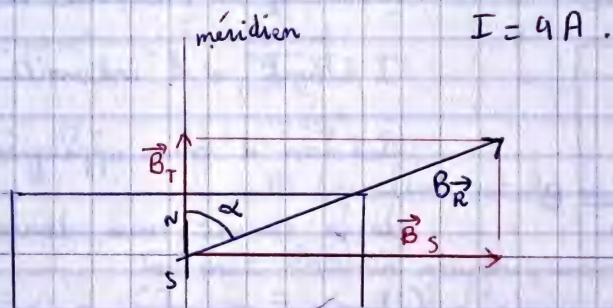 méridien
I = 4 A.
B⃗_T
N
α
B_R⃗
B⃗_S
S